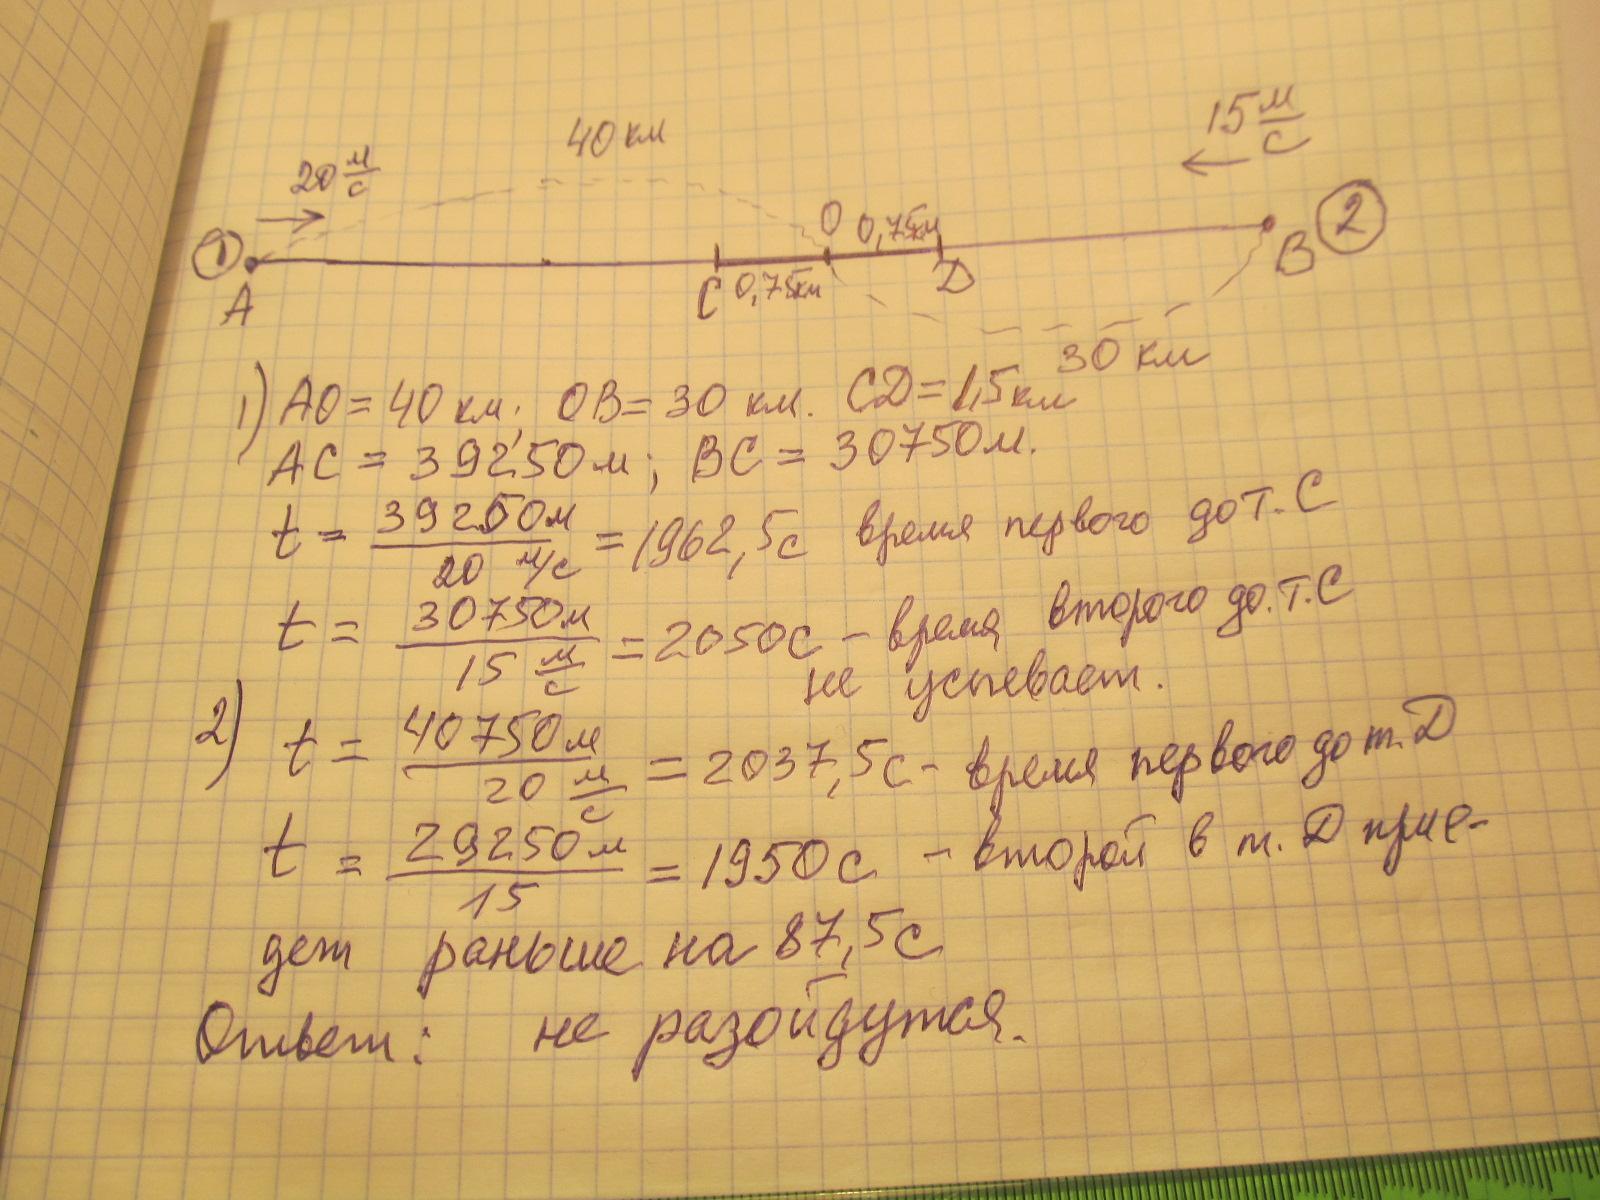 40 км
15 м/с
20 м/с
1 A
C 0,75км O 0,75км D
B 2
30 км
1) AO = 40 км; OB = 30 км. CD = 1,5 км
AC = 39250м; BC = 30750м.
t = 39250м / 20 м/с = 1962,5с время первого до т. C
t = 30750м / 15 м/с = 2050с – время второго до.т.C
не успевает.
2) t = 40750м / 20 м/с = 2037,5с - время первого до т. D
t = 29250м / 15 = 1950с – второй в т. D прие-
дет раньше на 87,5с
Ответ: не разойдутся.